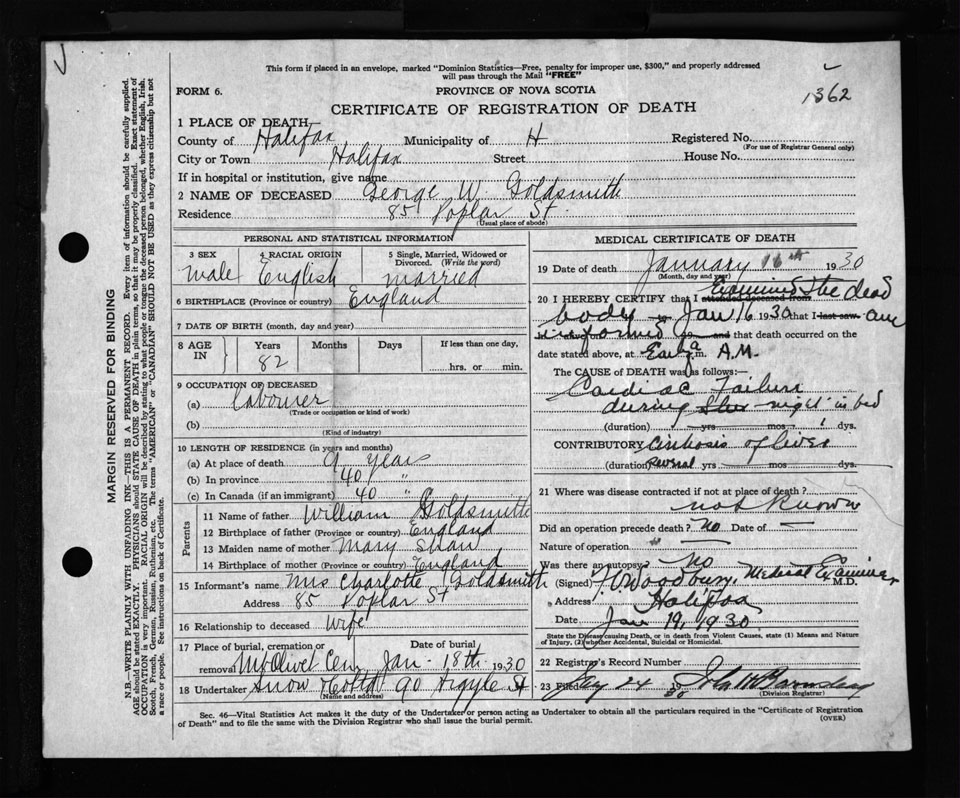 This form if placed in an envelope, marked "Dominion Statistics—Free, penalty for improper use, $300," and properly addressed
will pass through the Mail "FREE"
FORM 6.
PROVINCE OF NOVA SCOTIA
1362
CERTIFICATE OF REGISTRATION OF DEATH
1 PLACE OF DEATH
County of Halifax Municipality of H Registered No.
(For use of Registrar General only)
City or Town Halifax Street House No.
If in hospital or institution, give name
2 NAME OF DECEASED George W. Goldsmith
Residence 85 Poplar St
(Usual place of abode)
PERSONAL AND STATISTICAL INFORMATION
3 SEX 4 RACIAL ORIGIN 5 Single, Married, Widowed or Divorced. (Write the word)
male English married
6 BIRTHPLACE (Province or country) England
7 DATE OF BIRTH (month, day and year)
8 AGE IN Years Months Days If less than one day,
82 hrs. or min.
9 OCCUPATION OF DECEASED
(a) Labourer
(Trade or occupation or kind of work)
(b)
(Kind of industry)
10 LENGTH OF RESIDENCE (in years and months)
(a) At place of death 9 years
(b) In province 40 "
(c) In Canada (if an immigrant) 40 "
Parents
11 Name of father William Goldsmith
12 Birthplace of father (Province or country) England
13 Maiden name of mother Mary Shaw
14 Birthplace of mother (Province or country) England
15 Informant's name Mrs Charlotte Goldsmith
Address 85 Poplar St
16 Relationship to deceased Wife
17 Place of burial, cremation or Date of burial
removal Mt Olivet Cem Jan - 18th 1930
18 Undertaker Snow 90 Argyle St
(Name and address)
MEDICAL CERTIFICATE OF DEATH
19 Date of death January 16th 1930
(Month, day and year)
Examined the dead
20 I HEREBY CERTIFY that I attended deceased from
body Jan 16 1930 that I last saw am
informed 19 and that death occurred on
the date stated above, at Early a m. A.M.
The CAUSE OF DEATH was as follows:—
Cardiac Failure
during the night in bed
(duration) yrs mos dys.
CONTRIBUTORY Cirrhosis of liver
(duration) several yrs mos dys.
21 Where was disease contracted if not at place of death?
not known
Did an operation precede death? no Date of —
Nature of operation " —
Was there an autopsy? No
(Signed) Woodbury, Medical Examiner M.D.
" Address Halifax
Date Jan 19, 1930
State the Disease causing Death, or in death from Violent Causes, state (1) Means and Nature
of Injury, (2) whether Accidental, Suicidal or Homicidal.
22 Registrar's Record Number
23 24 30
(Division Registrar)
Sec. 46—Vital Statistics Act makes it the duty of the Undertaker or person acting as Undertaker to obtain all the particulars required in the "Certificate of Registration
of Death" and to file the same with the Division Registrar who shall issue the burial permit.
(OVER)
MARGIN RESERVED FOR BINDING
N.B.—WRITE PLAINLY WITH UNFADING INK—THIS IS A PERMANENT RECORD. Every item of information should be carefully supplied.
AGE should be stated EXACTLY. PHYSICIANS should STATE CAUSE OF DEATH in plain terms, so that it may be properly classified. Exact statement of
OCCUPATION is very important. RACIAL ORIGIN will be described by stating to what people or tongue the deceased person belonged, whether English, Irish,
Scotch, French, German, Russian, Ruthenian, etc. The terms "AMERICAN" or "CANADIAN" SHOULD NOT BE USED as they express citizenship but not
a race or people. See instructions on back of Certificate.